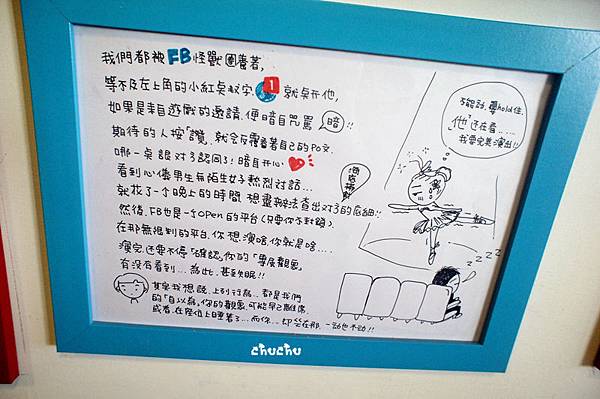 我們都被FB怪獸圈養著,
等不及左上角的小紅點數字 1 就點開他,
如果是來自遊戲的邀請,便暗自咒罵 暗!!
期待的人按「讚」就會反覆看著自己的Po文,
哪一點說對了認同了!暗自開心
看到心儀男生與陌生女子熱烈對話...
就找了一個晚上的時間 想盡辦法查出對方的底細!!
然後, FB也是一個open的平台(只要你不封鎖).
在那無遠弗屆的平台,你想演啥,你就是啥....
演完,還要不停「確認」你的「專屬觀眾」
有沒有看到...為此,甚至失眠!!
其實我想說,上列行為...都是我們
的「自以為」,你的觀眾,可能早已離席
或者,在座位上睡著了...而你...卻坐在那,一動也不動!!
不能動,要hold住,
「他」還在看.....
我要完美演出!!
z z z z
chuchu